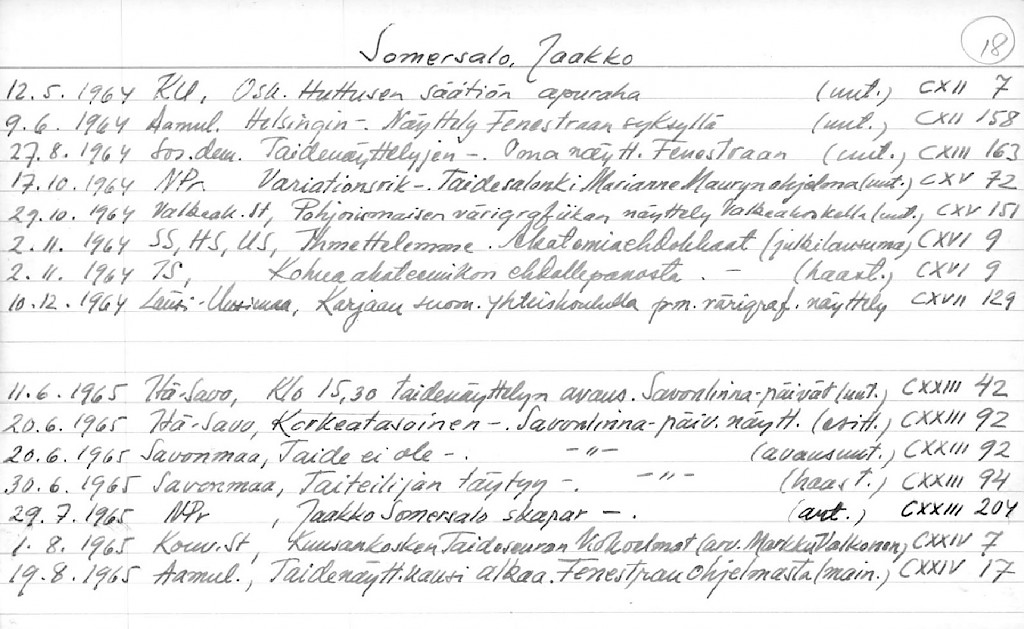 18
Somersalo, Jaakko
12.5.1964 KU, Osk. Huttusen säätiön apuraha (uut.) CXII 7
9.6.1964 Aamul. Helsingin -. Näyttely Fenestraan syksyllä (uut.) CXII 158
27.8.1964 Sos.dem. Taidenäyttelyjen -. Oma näytt. Fenestraan (uut.) CXIII 163
17.10.1964 NPr Variationsrik -. Taidesalonki Marianne Mauryn ohjelma (uut.) CXV 72
29.10.1964 Valkeak. St, Pohjoismaisen värigrafiikan näyttely Valkeakoskella (uut.) CXV 151
2.11.1964 SS, HS, US, Ihmettelemme. Akatemiaehdokkaat (julkilausuma) CXVI 9
2.11.1964 IS, Kohua akateemikon ehdollepanosta. - (haast.) CXVI 9
10.12.1964 Länsi-Uusimaa, Karjaan suom. yhteiskoululla pm. värigraf. näyttely CXVII 129
11.6.1965 Itä-Savo, Klo 15,30 taidenäyttelyn avaus. Savonlinna-päivät (uut.) CXXIII 42
20.6.1965 Itä-Savo, Korkeatasoinen -. Savonlinna-päiv. näytt. (esitt.) CXXIII 92
20.6.1965 Savonmaa, Taide ei ole -. -"- (avausuut.) CXXIII 92
30.6.1965 Savonmaa, Taiteilijan täytyy -. -"- (haast.) CXXIII 94
29.7.1965 NPr, Jaakko Somersalo skapar -. (art.) CXXIII 204
1.8.1965 Kouv. St, Kuusankosken Taideseuran kokoelmat (arv. Markku Valkonen) CXXIV 7
19.8.1965 Aamul., Taidenäytt.kausi alkaa. Fenestran ohjelmasta (main.) CXXIV 17